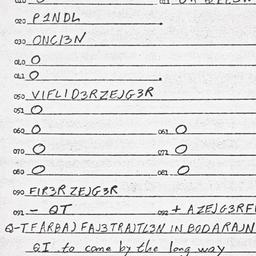 020 P1NDL
030 ONCI3N
010 O
011 O
050 VIFLID3RZEJG3R
051 O
060 O 061 O
070 O 071 O
080 O 081 O
090 FIR3R ZEJG3R
091 - QT 092 + AZEJG3RF
Q-TFARBAJ FAJ3TRAJTL3N IN BODARAJN
QI to come by the long way